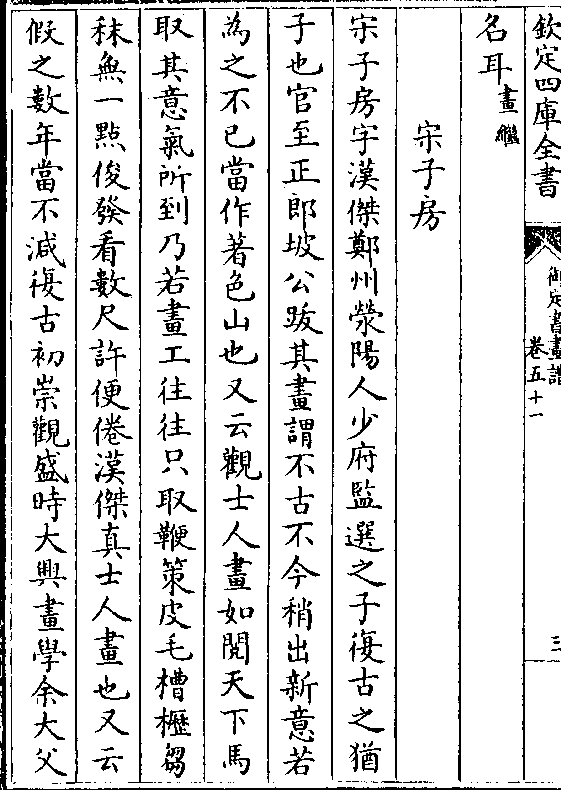 欽定四庫全書
御定書畫譜
卷五十一
三
名耳畫繼
宋子房
宋子房字漢傑鄭州滎陽人少府監選之子復古之猶
子也官至正郎坡公跋其畫謂不古不今稍出新意若
為之不已當作著色山也又云觀士人畫如閱天下馬
取其意氣所到乃若畫工往往只取鞭策皮毛槽櫪芻
秣無一點俊發看數尺許便倦漢傑真士人畫也又云
假之數年當不減復古初崇觀盛時大興畫學余大父